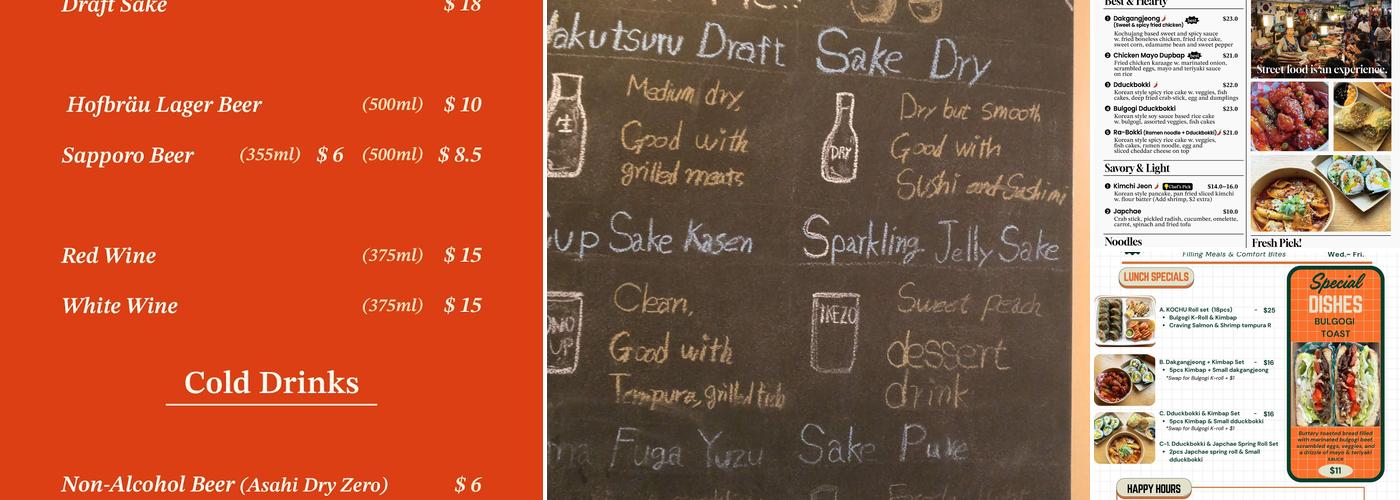 Draft Sake $ 18
Hofbräu Lager Beer (500ml) $ 10
Sapporo Beer (355ml) $ 6 (500ml) $ 8.5
Red Wine (375ml) $ 15
White Wine (375ml) $ 15
Cold Drinks
Non-Alcohol Beer (Asahi Dry Zero) $ 6
akutsuru Draft
生
Medium dry,
Good with
grilled meats
Sake Dry
DRY
Dry but smooth
Good with
Sushi and Sashimi
up Sake Kasen
UP
Clean,
Good with
Tempura, grilled fish
Sparkling Jelly Sake
IKEZO
Sweet peach
dessert
drink
Fuga Yuzu
Sake Pure
Best & Hearty
1 Dakgangjeong $23.0
(Sweet & spicy fried chicken)
Kochujang based sweet and spicy sauce
w. fried boneless chicken, fried rice cake,
sweet corn, edamame bean and sweet pepper
2 Chicken Mayo Dupbap $21.0
Fried chicken karaage w. marinated onion,
scrambled eggs, mayo and teriyaki sauce
on rice
3 Dduckbokki $22.0
Korean style spicy rice cake w. veggies, fish
cakes, deep fried crab stick, egg and dumplings
4 Bulgogi Dduckbokki $23.0
Korean style soy sauce based rice cake
w. bulgogi, assorted veggies, fish cakes
5 Ra-Bokki (Ramen noodle + Dduckbokki) $21.0
Korean style spicy rice cake w. veggies,
fish cakes, ramen noodle, egg and
sliced cheddar cheese on top
Savory & Light
1 Kimchi Jeon Chef's Pick $14.0~16.0
Korean style pancake, pan fried sliced kimchi
w. flour batter (Add shrimp, $2 extra)
2 Japchae $10.0
Crab stick, pickled radish, cucumber, omelette,
carrot, spinach and fried tofu
Noodles
Street food is an experience.
Fresh Pick!
Filling Meals & Comfort Bites Wed.- Fri.
LUNCH SPECIALS
A. KOCHU Roll set (18pcs) - $25
• Bulgogi K-Roll & Kimbap
• Craving Salmon & Shrimp tempura R
B. Dakgangjeong + Kimbap Set - $16
• 5pcs Kimbap + Small dakgangjeong
*Swap for Bulgogi K-roll + $1
C. Dduckbokki & Kimbap Set - $16
• 5pcs Kimbap & Small dduckbokki
*Swap for Bulgogi K-roll + $1
C-1. Dduckbokki & Japchae Spring Roll Set
• 2pcs Japchae spring roll & Small
dduckbokki
HAPPY HOURS
Special
DISHES
BULGOGI
TOAST
Buttery toasted bread filled
with marinated bulgogi beef,
scrambled eggs, veggies, and
a drizzle of mayo & teriyaki
sauce
$11